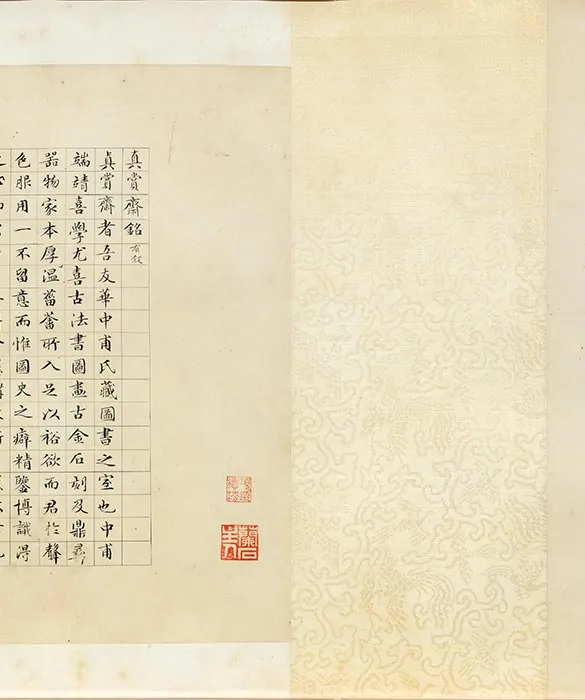 真賞齋銘 有叙
真賞齋者吾友華中甫氏藏圖書之室也中甫
端靖喜學尤喜古法書圖畫古金石刻及鼎彝
器物家本厚溫菑畬所入足以裕欲而君於聲
色服用一不留意而惟圖史之癖精鑒博識得